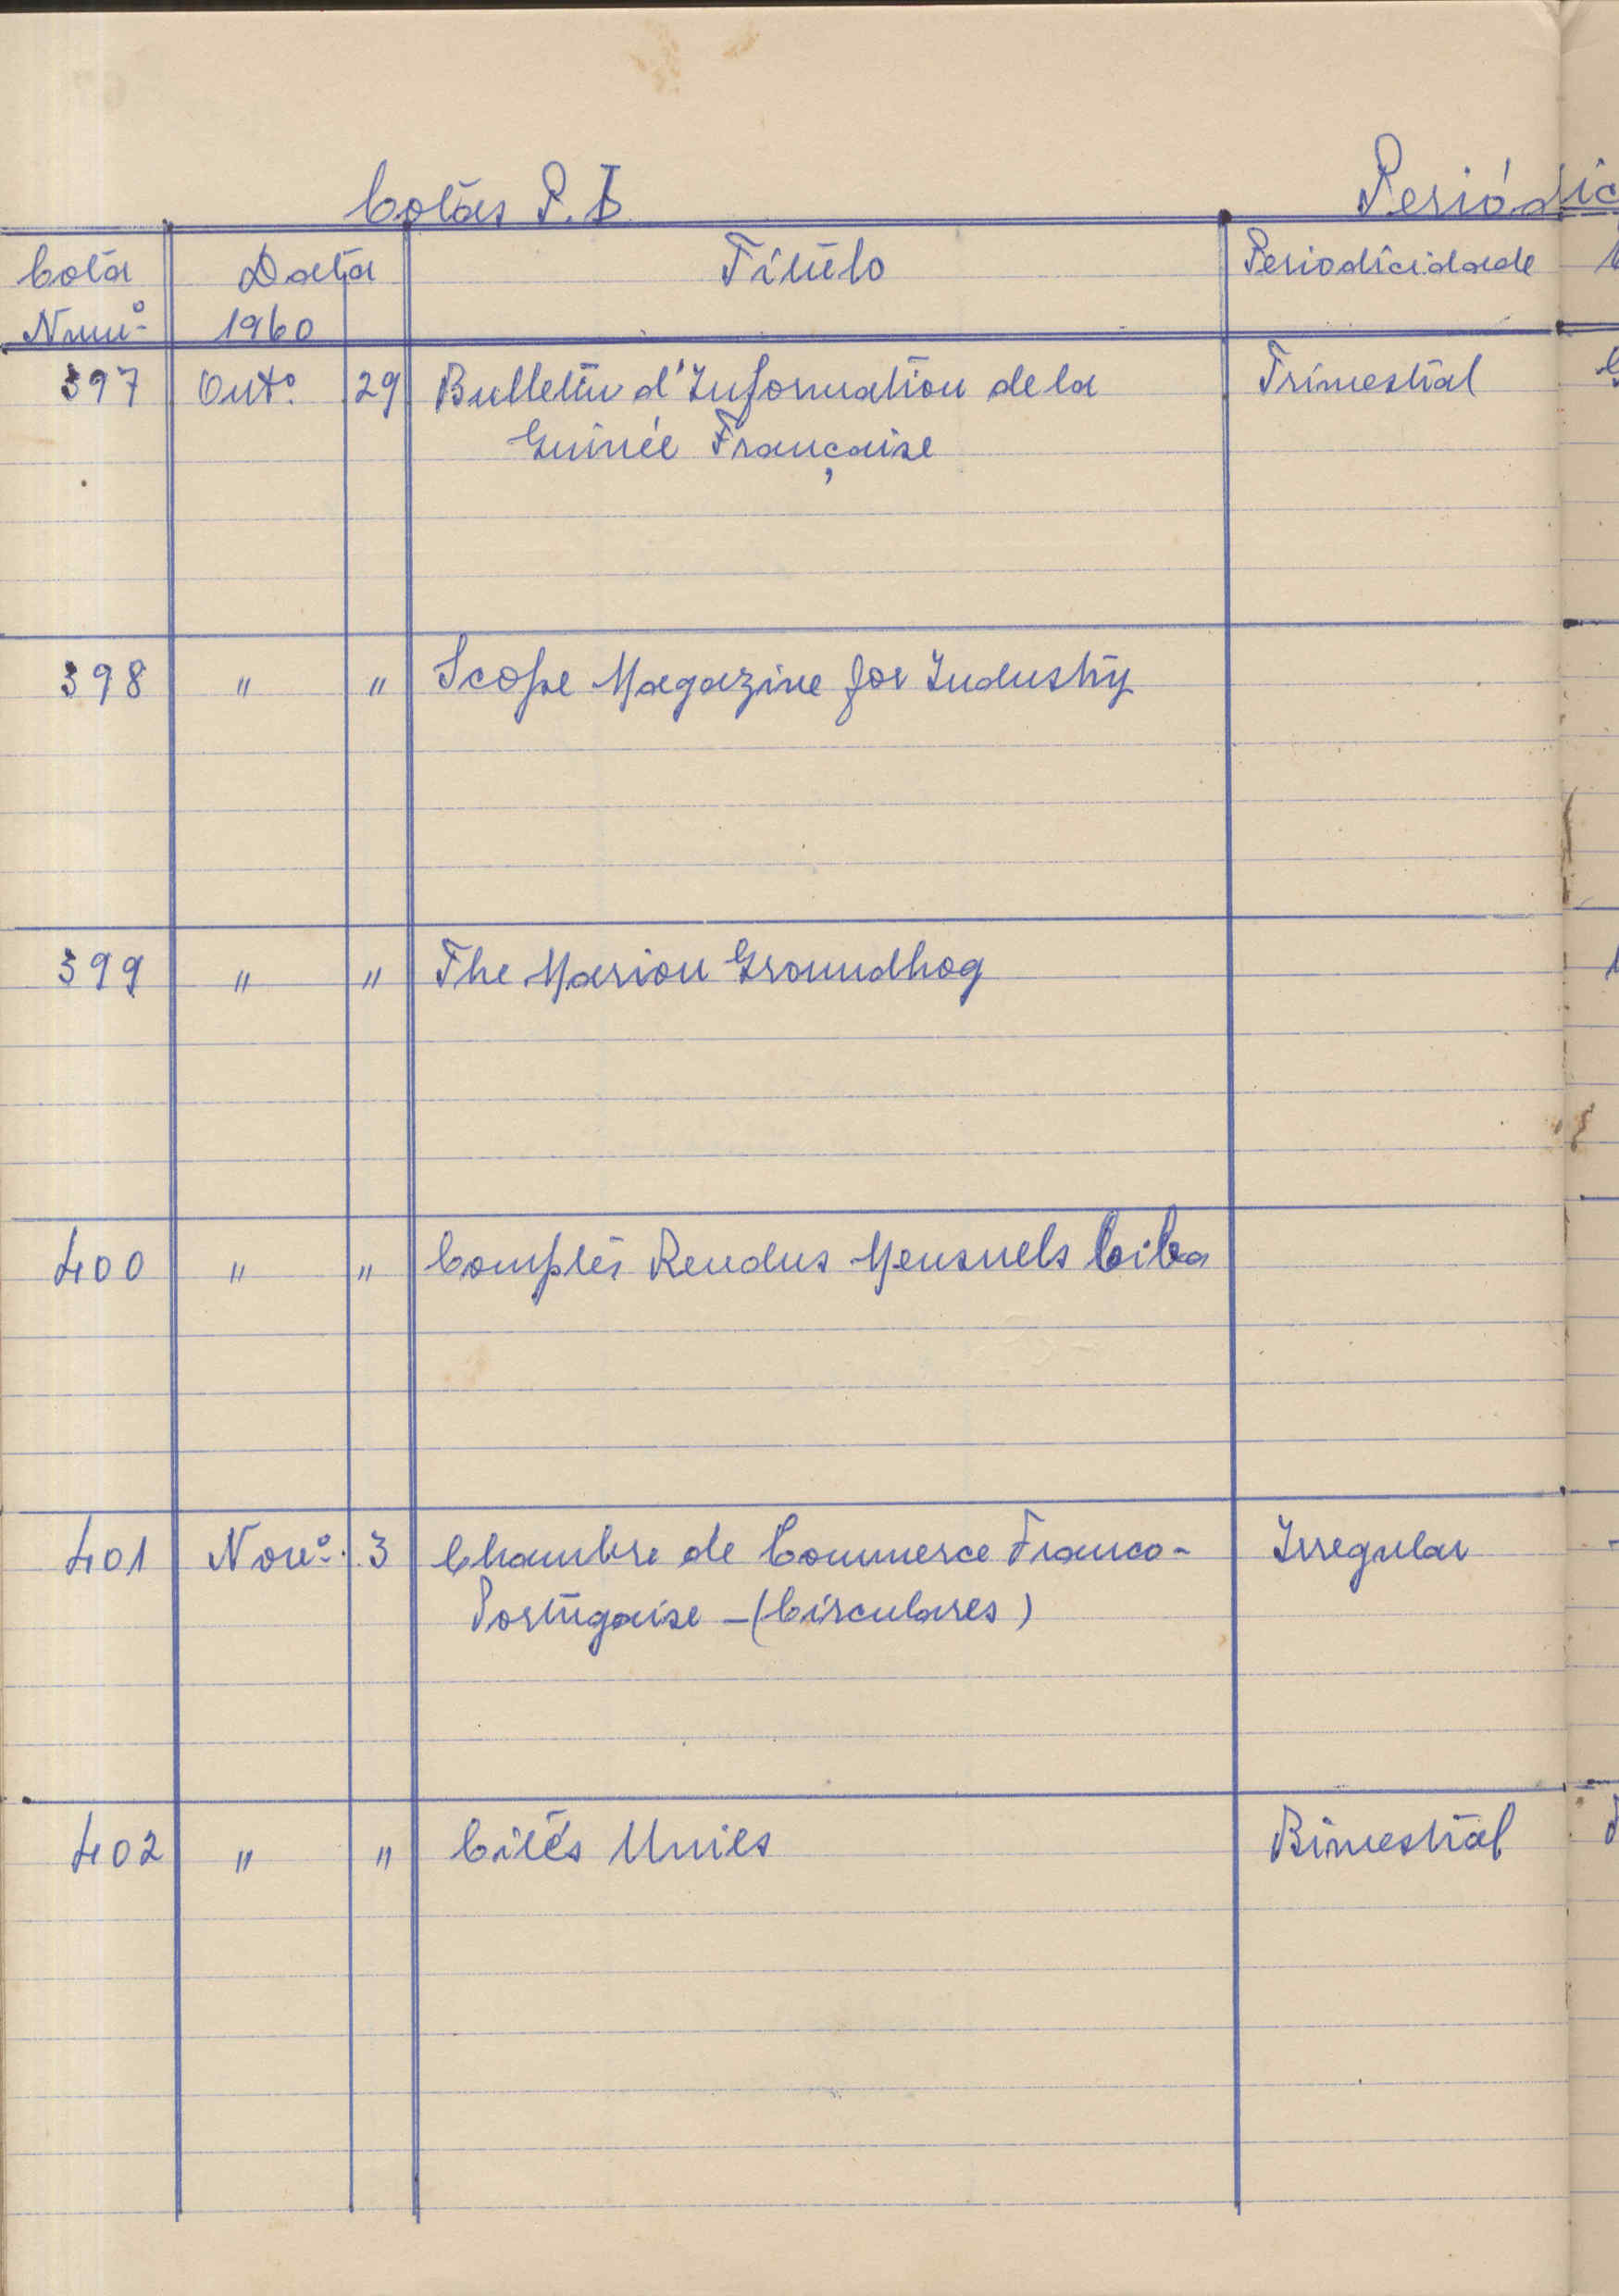 Cotas P. I Periódic
Cota Data Título Periodicidade
Numº 1960
397 Outº 29 Bulletin d'Information de la Trimestral
Guinée Française
398 " " Scope Magazine for Industry
399 " " The Marion Groundhog
400 " " Comptes Rendus Mensuels Ciba
401 Novº. 3 Chambre de Commerce Franco- Irregular
Portugaise - (Circulares)
402 " " Cités Unies Bimestral